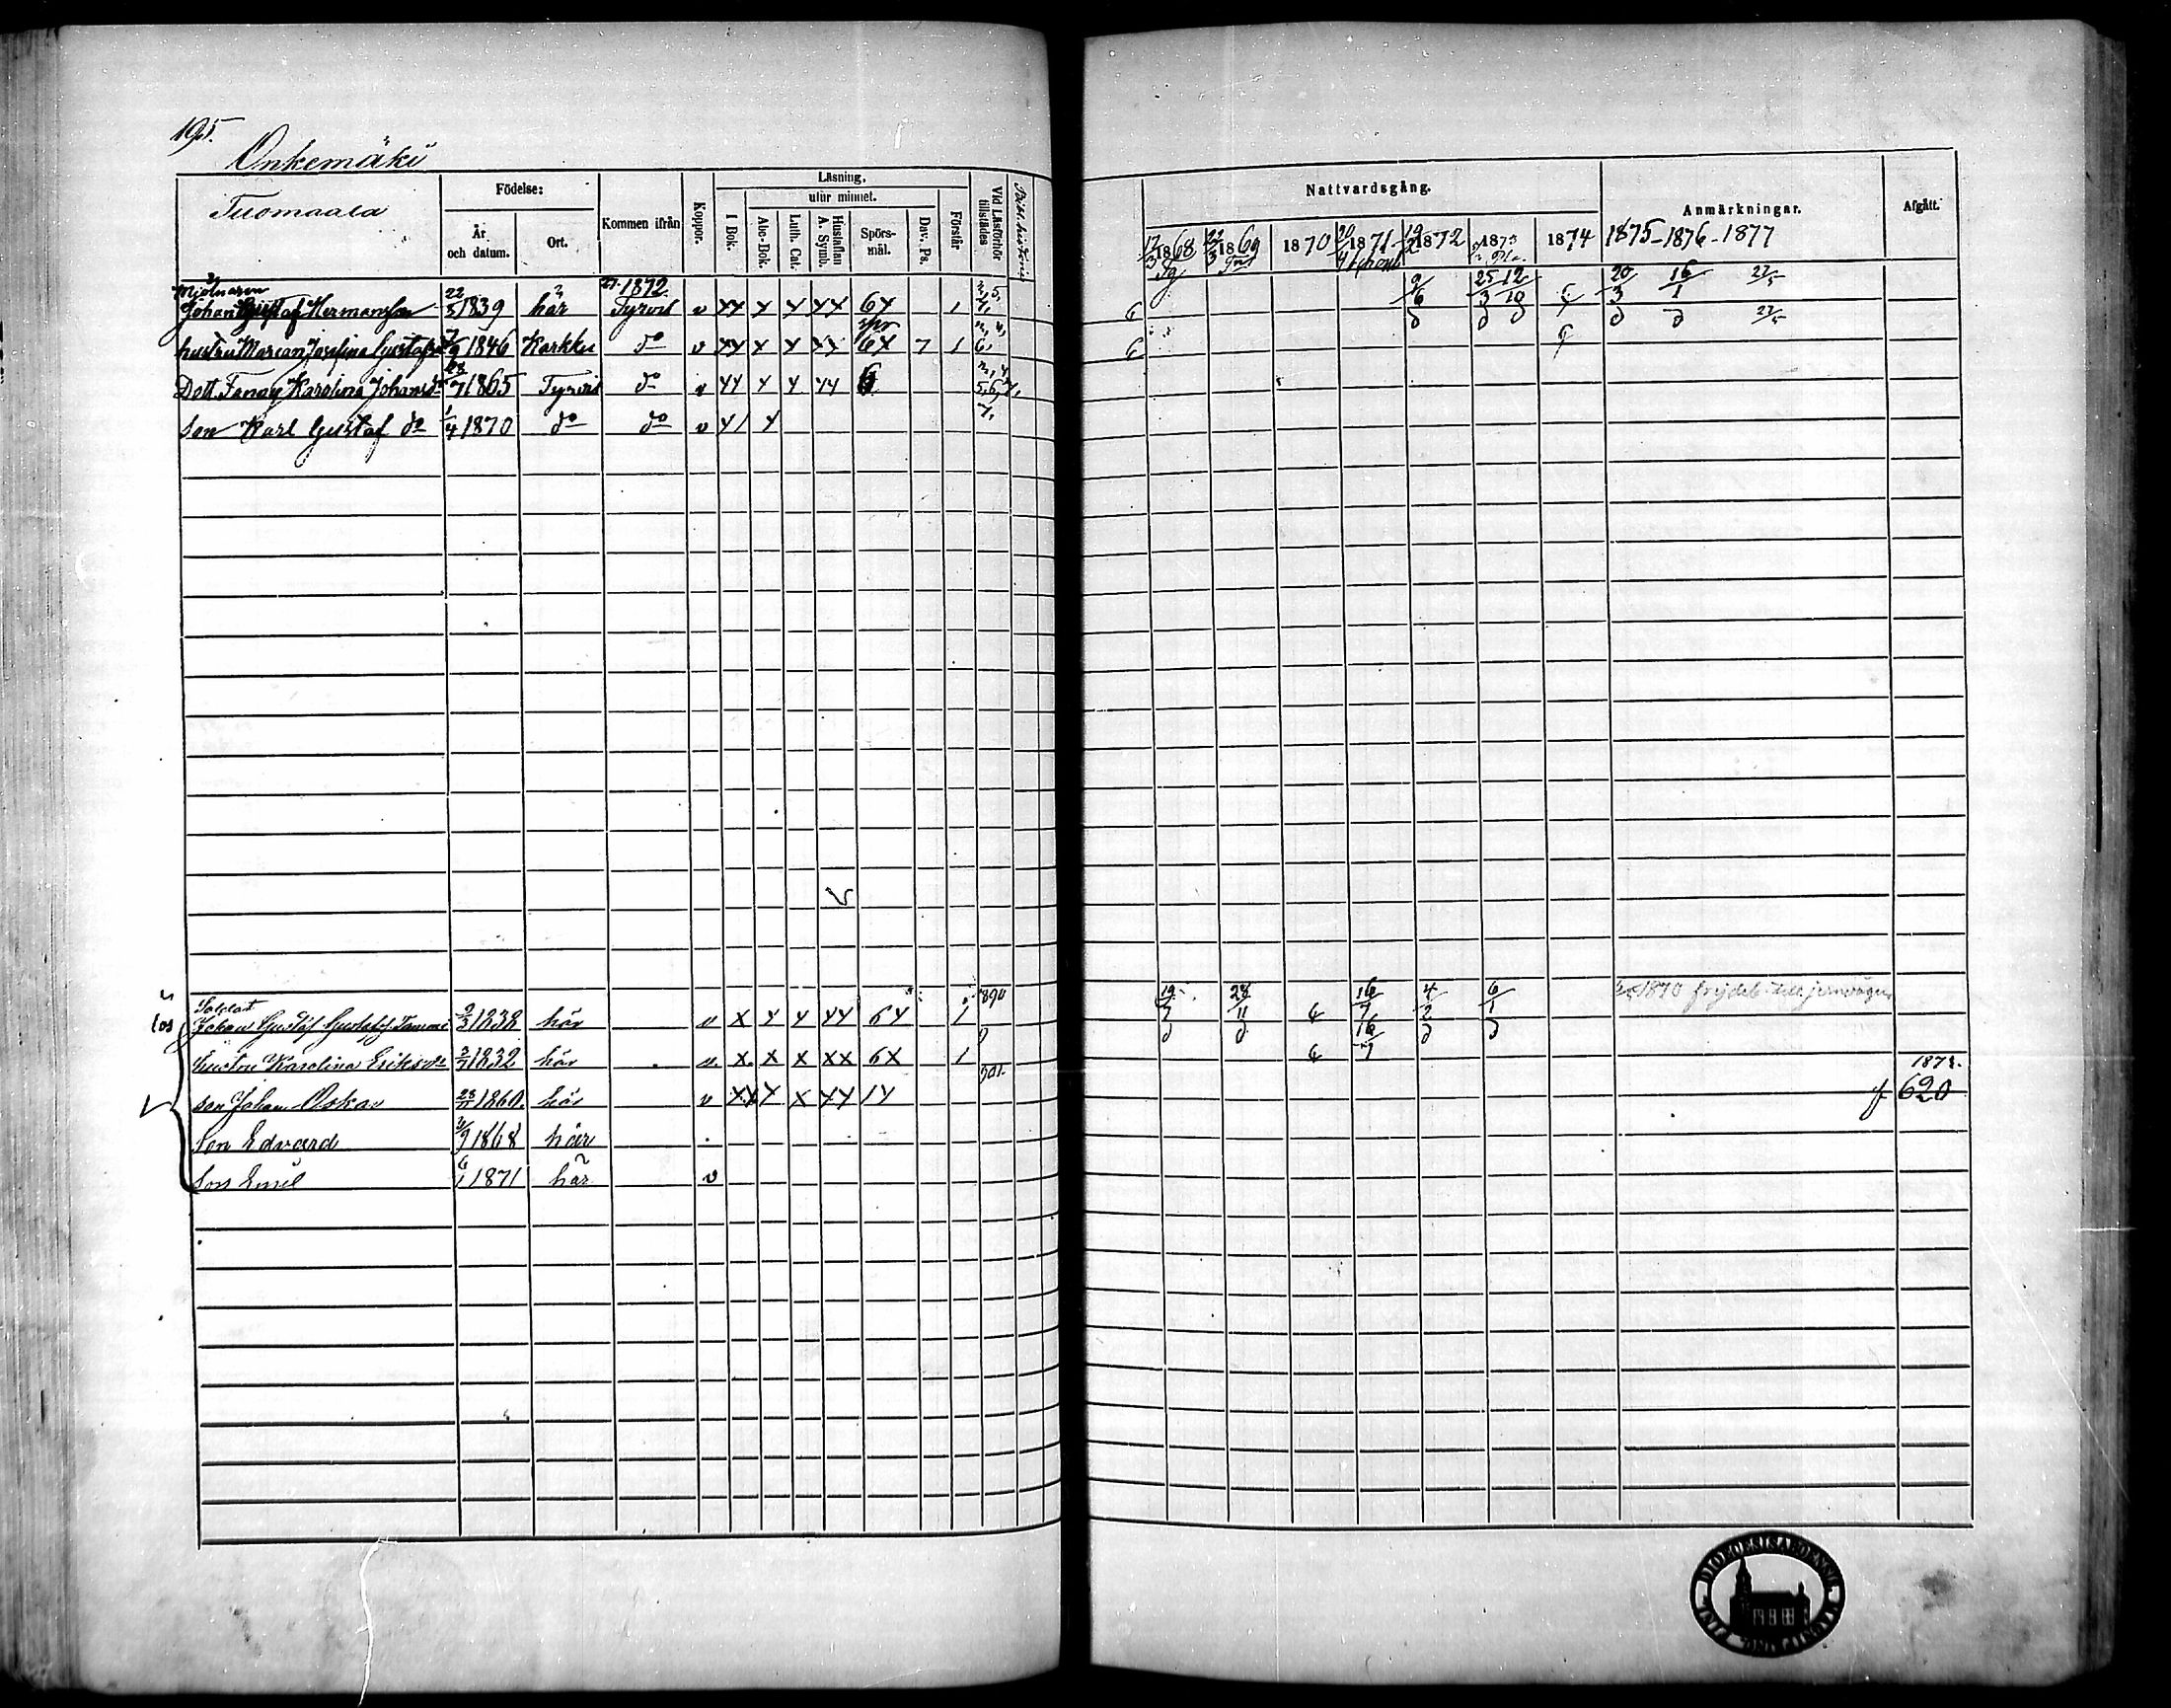 195.
Onkemäki
Tuomaala
Födelse:
År och datum.
Ort.
Kommen ifrån
Koppor.
Läsning,
utur minnet.
I Bok.
Abc-Bok.
Luth. Cat.
Hustaflan A. Symb.
Spörsmål.
Dav. Ps.
Förstår
Vid Läsförhör tillstädes
Nattvardsgång.
17/3 1868 22/3 1869 1870 20/4 1871 1872 1873 1874
Anmärkningar.
1875-1876-1877
Afgått.
Mjölnaren 1872
Johan Gustaf Hermansson 22/5 1839 här Tyrvis v XX X X XX 6X 1 9/6 25/3 12/10 20/3 16/1 22/5
hustru Marian Josefina Gustafsdr 7/9 1846 Karkku do v XX X X XX 6X 7 1 22/5
Dott. Fanny Karolina Johansdr 1865 Tyrvis do v XX X X XX 5,6,7,
Son Karl Gustaf do 1/4 1870 do do v X/ X
Soldat 890
Johan Gustaf Gustafss. Tammi 1838 här v X X X XX 6X 1 19/7 28/11 16/7 4/2 6/1 1870 till jernvägen
hustru Karolina Eriksdr 1832 här v. X X X XX 6X 1 16/7
1873.
son Johan Oskar 23/11 1860. här v XX X X XX 1X 620
Son Edvard 1868 här
Son Emil 6/1 1871 här v